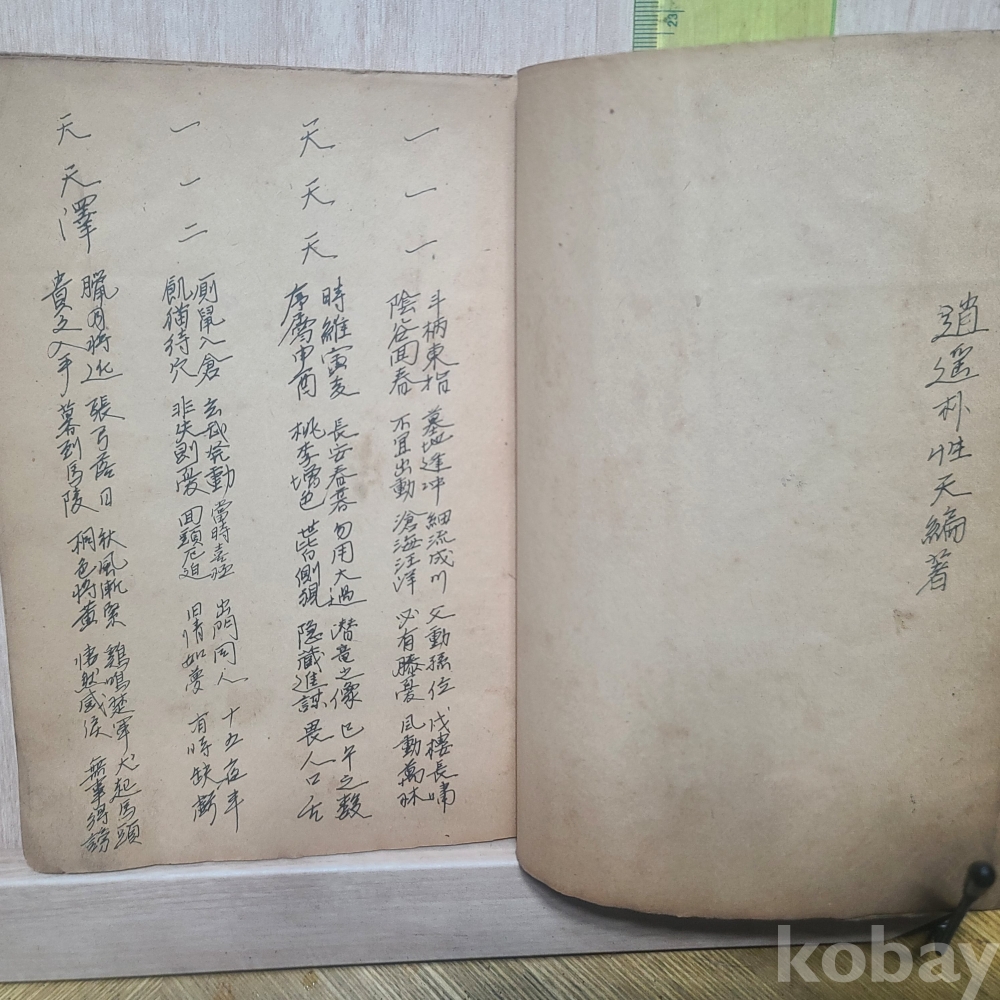 逍遥朴性天編著
一一一
斗柄東指 墓地逢冲 細流成川 文動孫位 戊樓長嘯
陰谷回春 不宜出動 滄海汪洋 必有滕憂 風動萬林
天天天
時維寅支 長安春暮 勿用大過 潜竜之像 巳午之數
序屬申酉 桃李増色 世皆側視 隐藏進謀 畏人口舌
一一二
厠鼠入倉 玄武発動 當時喜 出門同人 十五夜半
飢猫待穴 非失則憂 回頭厄迫 旧情如夢 有時缺虧
天天澤
臘月將近 張弓落日 秋風漸緊 鷄鳴楚軍 犬起馬頭
貴文入手 暮到馬陵 桐色将黄 悽然感 無事得謗
23
kobay